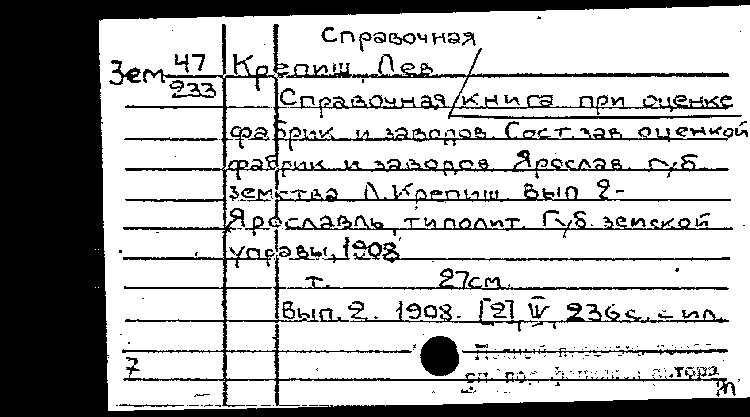 Справочная
Зем 47 Крепиш, Лев
233 Справочная книга при оценке
фабрик и заводов. Сост. зав. оценкой
фабрик и заводов Ярослав. губ.
земства Л. Крепиш. Вып 2-
Ярославль, типолит. Губ. земской
управы, 1908
т. 27см.
Вып. 2. 1908. [2], IV, 236с. с ил.
7
автора